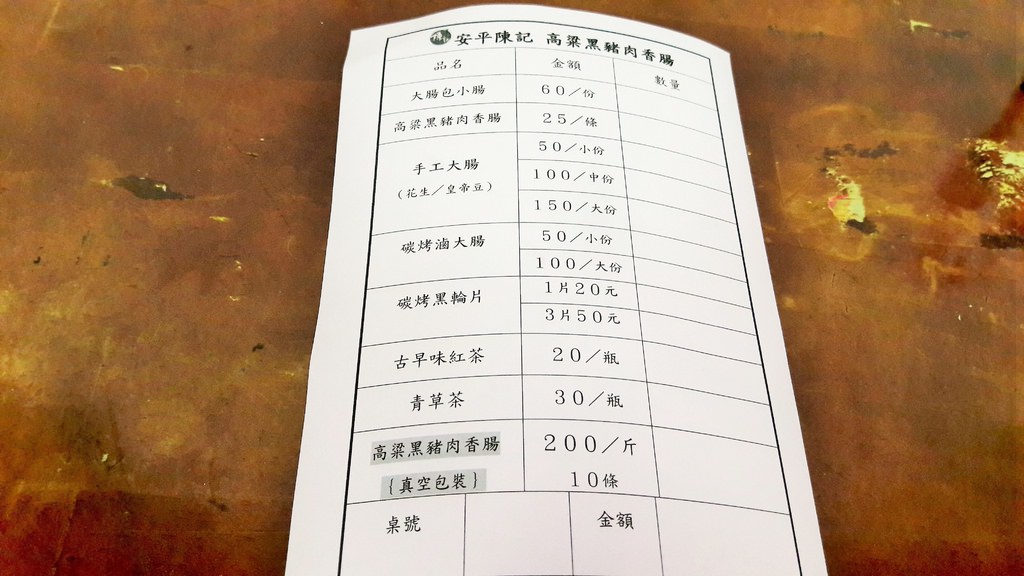 安平陳記 高粱黑豬肉香腸
品名 金額 數量
大腸包小腸 60/份
高粱黑豬肉香腸 25/條
手工大腸
(花生/皇帝豆)
50/小份
100/中份
150/大份
碳烤滷大腸
50/小份
100/大份
碳烤黑輪片
1片20元
3片50元
古早味紅茶 20/瓶
青草茶 30/瓶
高粱黑豬肉香腸 200/斤
{真空包裝} 10條
桌號 金額